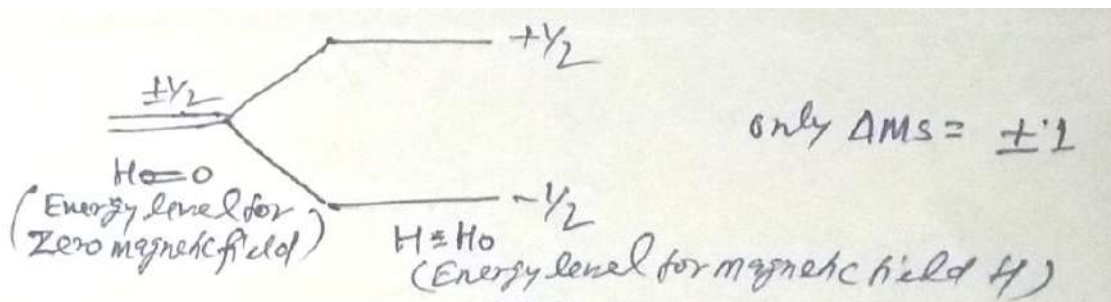 +1/2
±1/2
only ΔMS = ±1
H0=0
(Energy level for
Zero magnetic field)
-1/2
H = H0
(Energy level for magnetic field H)